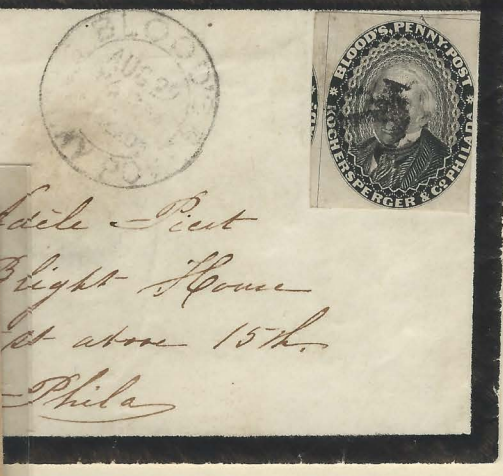 BLOOD'S
AUG 29
BLOOD'S, PENNY-POST
KOCHERSPERGER & CO. PHILADA
Adèle Picot
Bright House
st above 15th.
Phila